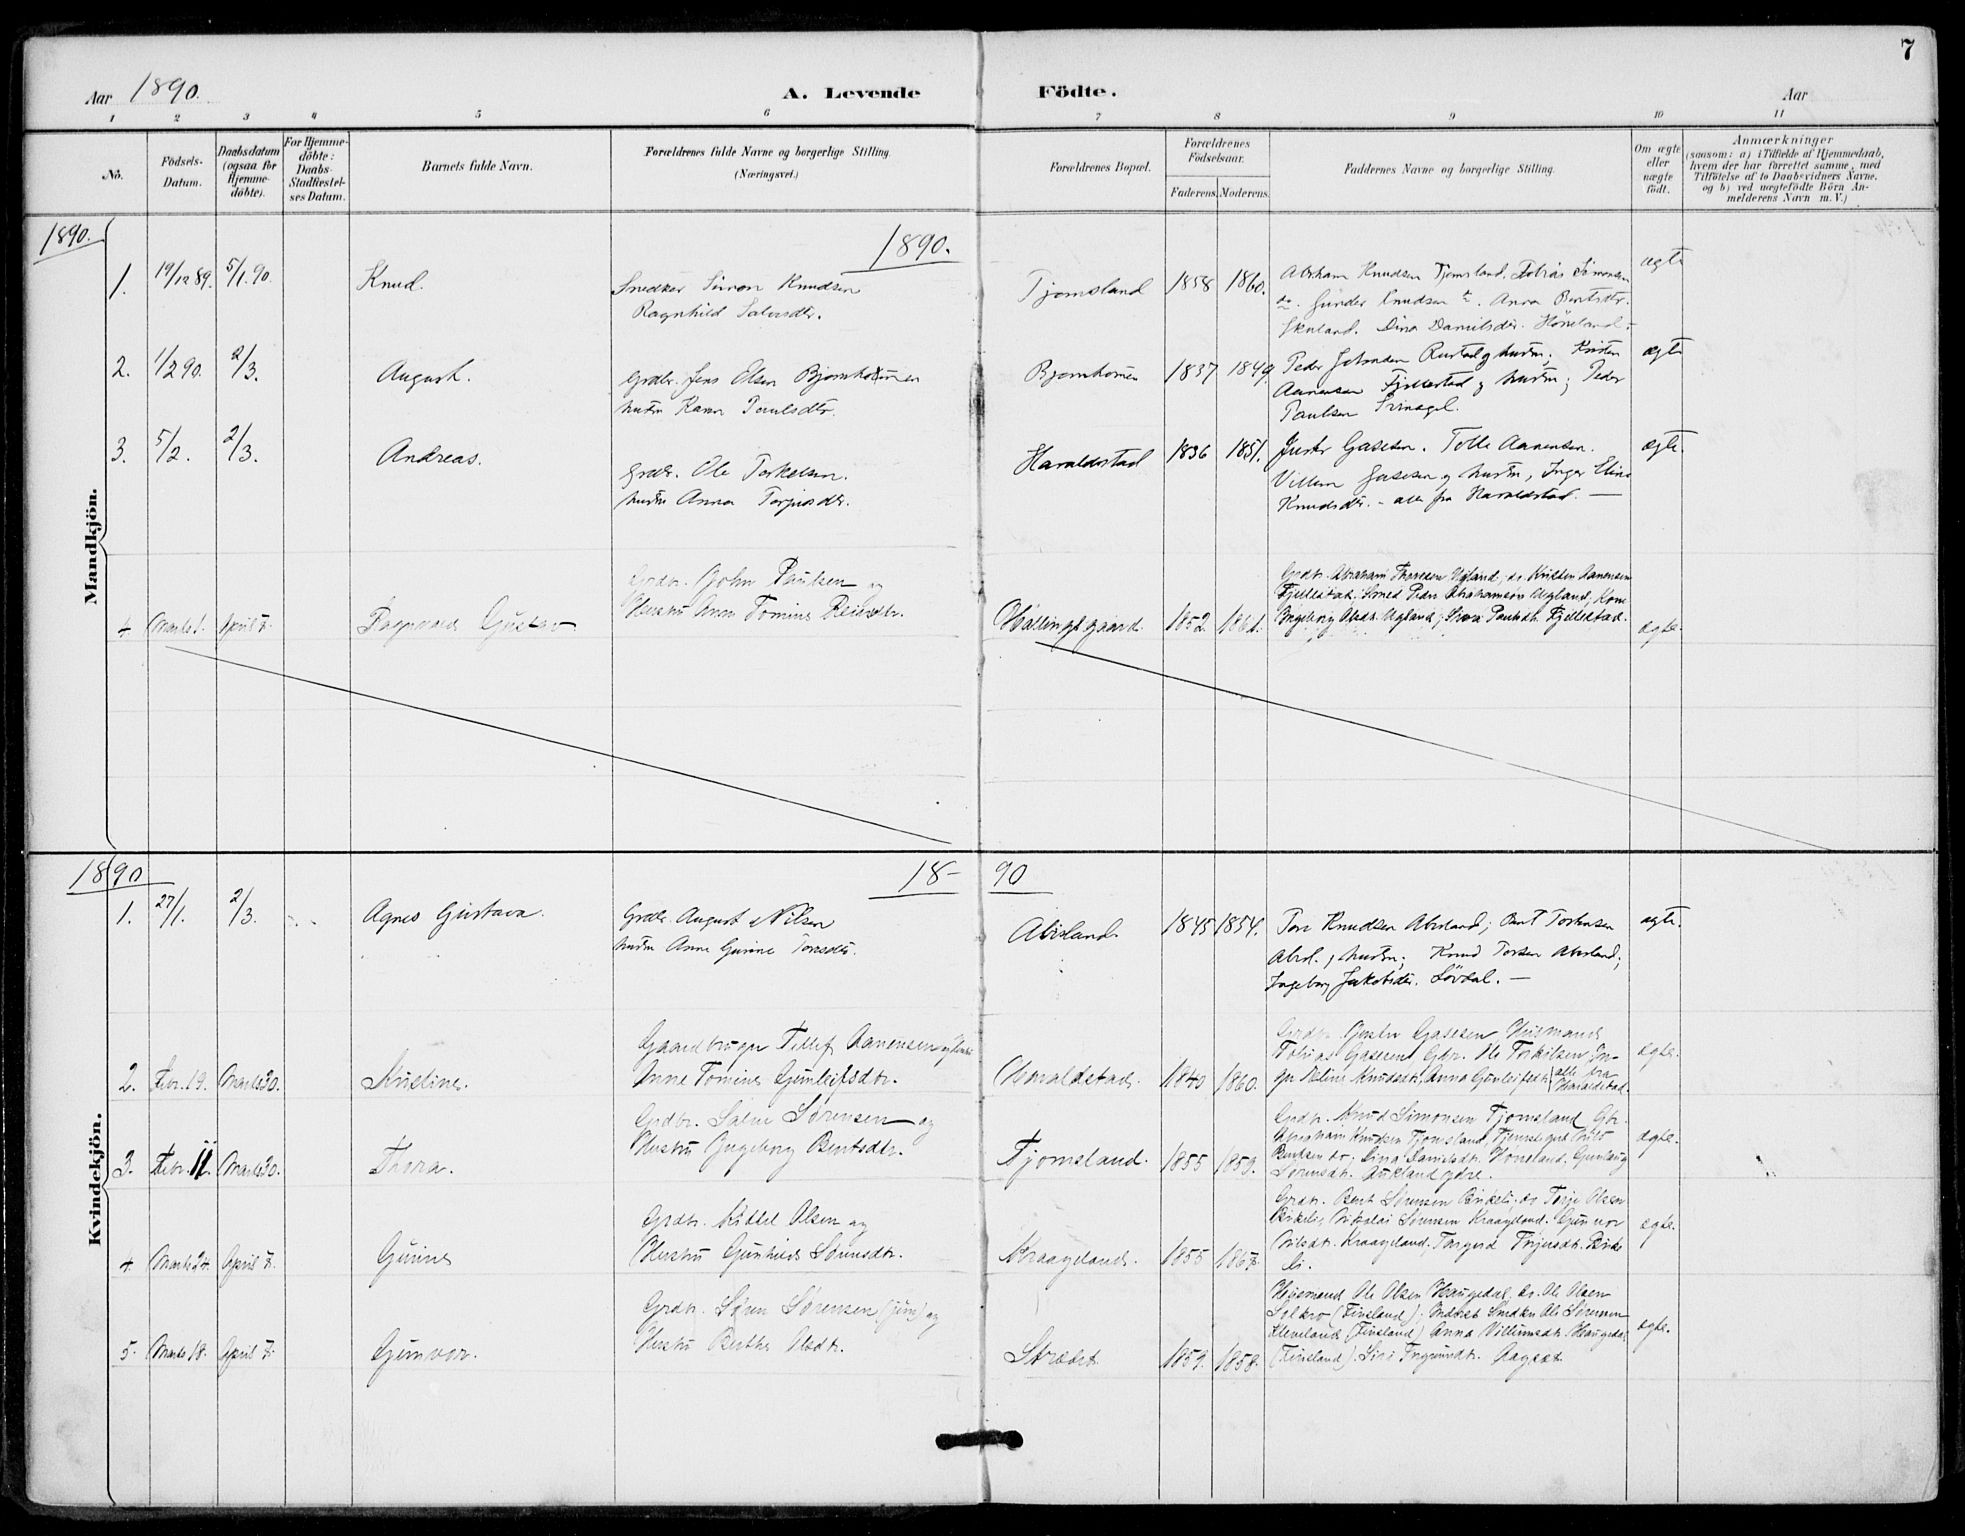 7
Aar 1890.
A. Levende Födte.
Aar
1 2 3 4 5 6 7 8 9 10 11
No.
Födsels-
Datum.
Daabsdatum
(ogsaa for
Hjemme-
döbte).
For Hjemme-
döbte:
Daabs-
Stadfæstel-
ses Datum.
Barnets fulde Navn.
Forældrenes fulde Navne og borgerlige Stilling.
(Næringsvei.)
Forældrenes Bopæl.
Forældrenes
Födselsaar.
Faderens. Moderens.
Faddernes Navne og borgerlige Stilling.
Om ægte
eller
uægte
födt.
Anmærkninger
(saasom: a) i Tilfælde af Hjemmedaab,
hvem der har forrettet samme, med
Tilföielse af to Daabsvidners Navne.
og b) ved uægtefödte Börn An-
melderens Navn m. V.)
Mandkjön.
1890.
1890.
1. 19/12 89. 5/1. 90. Knud.
Snedker Simon Knudsen
Ragnhild Salvesdtr.
Tjomsland 1858 1860.
Abraham Knudsen Tjomsland. Tobias Simonsen
do. Gunder Knudsen Anna Bentsdtr.
Skuland. Dina Danielsdtr. Höneland.
ægte
2. 1/2 90. 2/3. August.
Grdbr. Jens Olsen
hustru Karen Paulsdtr.
1837 1849.
Peder Rustad og hustru; Kristen
Aanensen Fjellestad og hustru; Peder
Paulsen
ægte
3. 5/2. 2/3. Andreas.
Grdbr. Ole Torkelsen.
hustru Anna
Haraldstad 1836 1851.
Gasesen. Tolle Aanensen.
Villum Gasesen og hustru, Inger Eline
Knudsdtr. - alle fra Haraldstad. —
ægte.
4. Marts 1. April 7. Gustav
Grdbr. John Paulsen og
Hustru Anna Tomine
Hallingsgaard. 1852. 1861.
Grdbr. Abraham Ugland, do. Kristen Aanensen
Fjellestad. Smed Peder Abrahamsen Ugland, Kone
Ingeborg Olsdtr. Ugland; Paulsdtr. Fjellestad.
ægte.
Kvindekjön.
1890
18- 90
1. 27/1. 2/3. Agnes Gustava.
Grdbr. August Nilsen
hustru Anne Gurine Toresdtr.
Abisland. 1845 1854.
Tore Knudsen Abisland; Bent
Abisl. og hustru; Knud Torsen Abisland;
Ingeborg Jakobsdtr. Lövdal. —
ægte.
2. Febr. 19. Marts 30. Kristine.
Gaardbruger Tellef Aanensen og Hustru
Anne Tomine Gunleifsdtr.
Haraldstad. 1840 1860.
Grdbr. Gasesen Husmand
Tobias Gasesen, Gbr. Ole Torkilsen, In-
ger Knudsdtr, Anna Gunleifsdtr, alle fra
Haraldstad.
ægte.
3. Febr. 11. Marts 30. Thora.
Grdbr. Salve Sørensen og
Hustru Ingeborg Bentsdtr.
Tjomsland. 1855 1859.
Grdbr. Knud Simonsen Tjomsland Gbr.
Abraham Knudsen Tjomsland, Nils
Bentsen do; Dina Danielsdtr. Höneland. Gunlaug
Sørensdtr. Aukland ydre.
ægte.
4. Marts 24. April 7. Gurine
Grdbr. Kittel Olsen og
Hustru Gunhild Sørensdtr.
Kraageland. 1855 1867.
Grdbr. Bent Sørensen Birkeli, do Terje Olsen
Birkeli, Nikolai Sørensen Kraageland. Gunvor
Nilsdtr. Kraageland. Torgerd Terjesdtr. Birke-
li.
ægte.
5. Marts 18. April 7. Gunvor.
Grdbr. Søren Sørensen (jun) og
Hustru Berthe Olsdtr.
1859. 1858.
Husmand Ole Olsen Haugedal, do. Ole Olsen
(Finsland); Snedker Ole Sørensen
Kleveland (Finsland) Anna Villumsdtr. Haugedal
(Finsland). Siri
ægte.